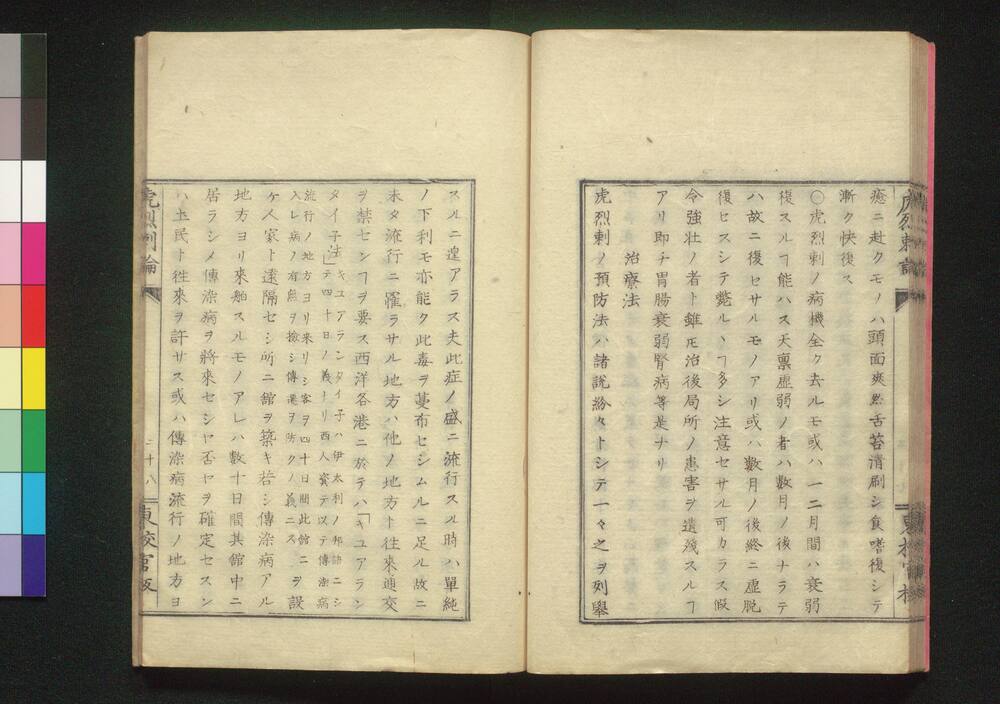 癒ニ赴クモノハ頭面爽然舌苔清刷シ食嗜復シテ
漸ク快復ス
〇虎烈剌ノ病機全ク去ルモ或ハ一二月間ハ衰弱
復スルヿ能ハス天禀虚弱ノ者ハ數月ノ後ナラテ
ハ故ニ復セサルモノアリ或ハ數月ノ後終ニ虚脱
復セスシテ斃ルヽヿ多シ注意セサル可カラス假
令強壮ノ者ト雖𪜈治後局所ノ患害ヲ遺残スルヿ
アリ即チ胃腸衰弱腎病等是ナリ
治療法
虎烈剌ノ預防法ハ諸説紛々トシテ一々之ヲ列擧
スルニ遑アラス夫此症ノ盛ニ流行スル時ハ單純
ノ下利モ亦能ク此毒ヲ蔓布セシムルニ足ル故ニ
未タ流行ニ罹ラサル地方ハ他ノ地方ト往來通交
ヲ禁センヿヲ要ス西洋各港ニ於テハ「キユアラン
タイ子法」キユアランタイ子ハ伊太利ノ邦語ニシ
テ四十日ノ義ナリ西人賓テ以テ傳染病
流行ノ地方ヨリ来リシ客ヲ四十日間此館ニ
入レ病ノ有無ヲ撿シ傳運ヲ防クノ義ニス
ヲ設
ケ人家ト遠隔セシ所ニ館ヲ築キ若シ傳染病アル
地方ヨリ來舶スルモノアレハ數十日間其館中ニ
居ラシメ傳染病ヲ將來セシヤ否ヤヲ確定セスン
ハ土民ト往來ヲ許サス或ハ傳染病流行ノ地方ヨ
虎烈剌論
二十八
東校官版